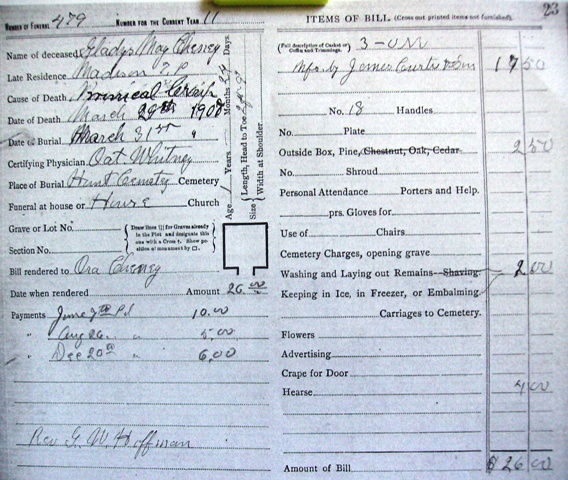 Number of Funeral 479 Number for the Current Year 11
Name of deceased Gladys May Cheney
Late Residence Madison T.P.
Cause of Death
Date of Death March 29th 1908
Date of Burial March 31st "
Certifying Physician Oat Whitney
Place of Burial Hunt Cemetry Cemetery
Funeral at house or House Church
Age Years Months Days
Size { Length, Head to Toe
Width at Shoulder
Grave or Lot No.
Section No.
{ Draw lines [ ] for Graves already in the Plot and designate this one with a Cross †. Show position of monument by □. }
Bill rendered to Ora Cheney
Date when rendered Amount 26.00
Payments June 7th Pd 10.00
" Aug 26 " 5.00
" Dec 20th " 6.00
Rev G. W. Hoffman
ITEMS OF BILL. (Cross out printed items not furnished). 23
(Full description of Casket or Coffin and Trimmings.
Mfg. by James Curtis & Son 17 50
No. 18 Handles
No. Plate
Outside Box, Pine, Chestnut, Oak, Cedar 2 50
No. Shroud
Personal Attendance Porters and Help.
prs. Gloves for
Use of Chairs
Cemetery Charges, opening grave
Washing and Laying out Remains—Shaving 2 00
Keeping in Ice, in Freezer, or Embalming
Carriages to Cemetery.
Flowers
Advertising
Crape for Door
Hearse 4 00
Amount of Bill $ 26 00